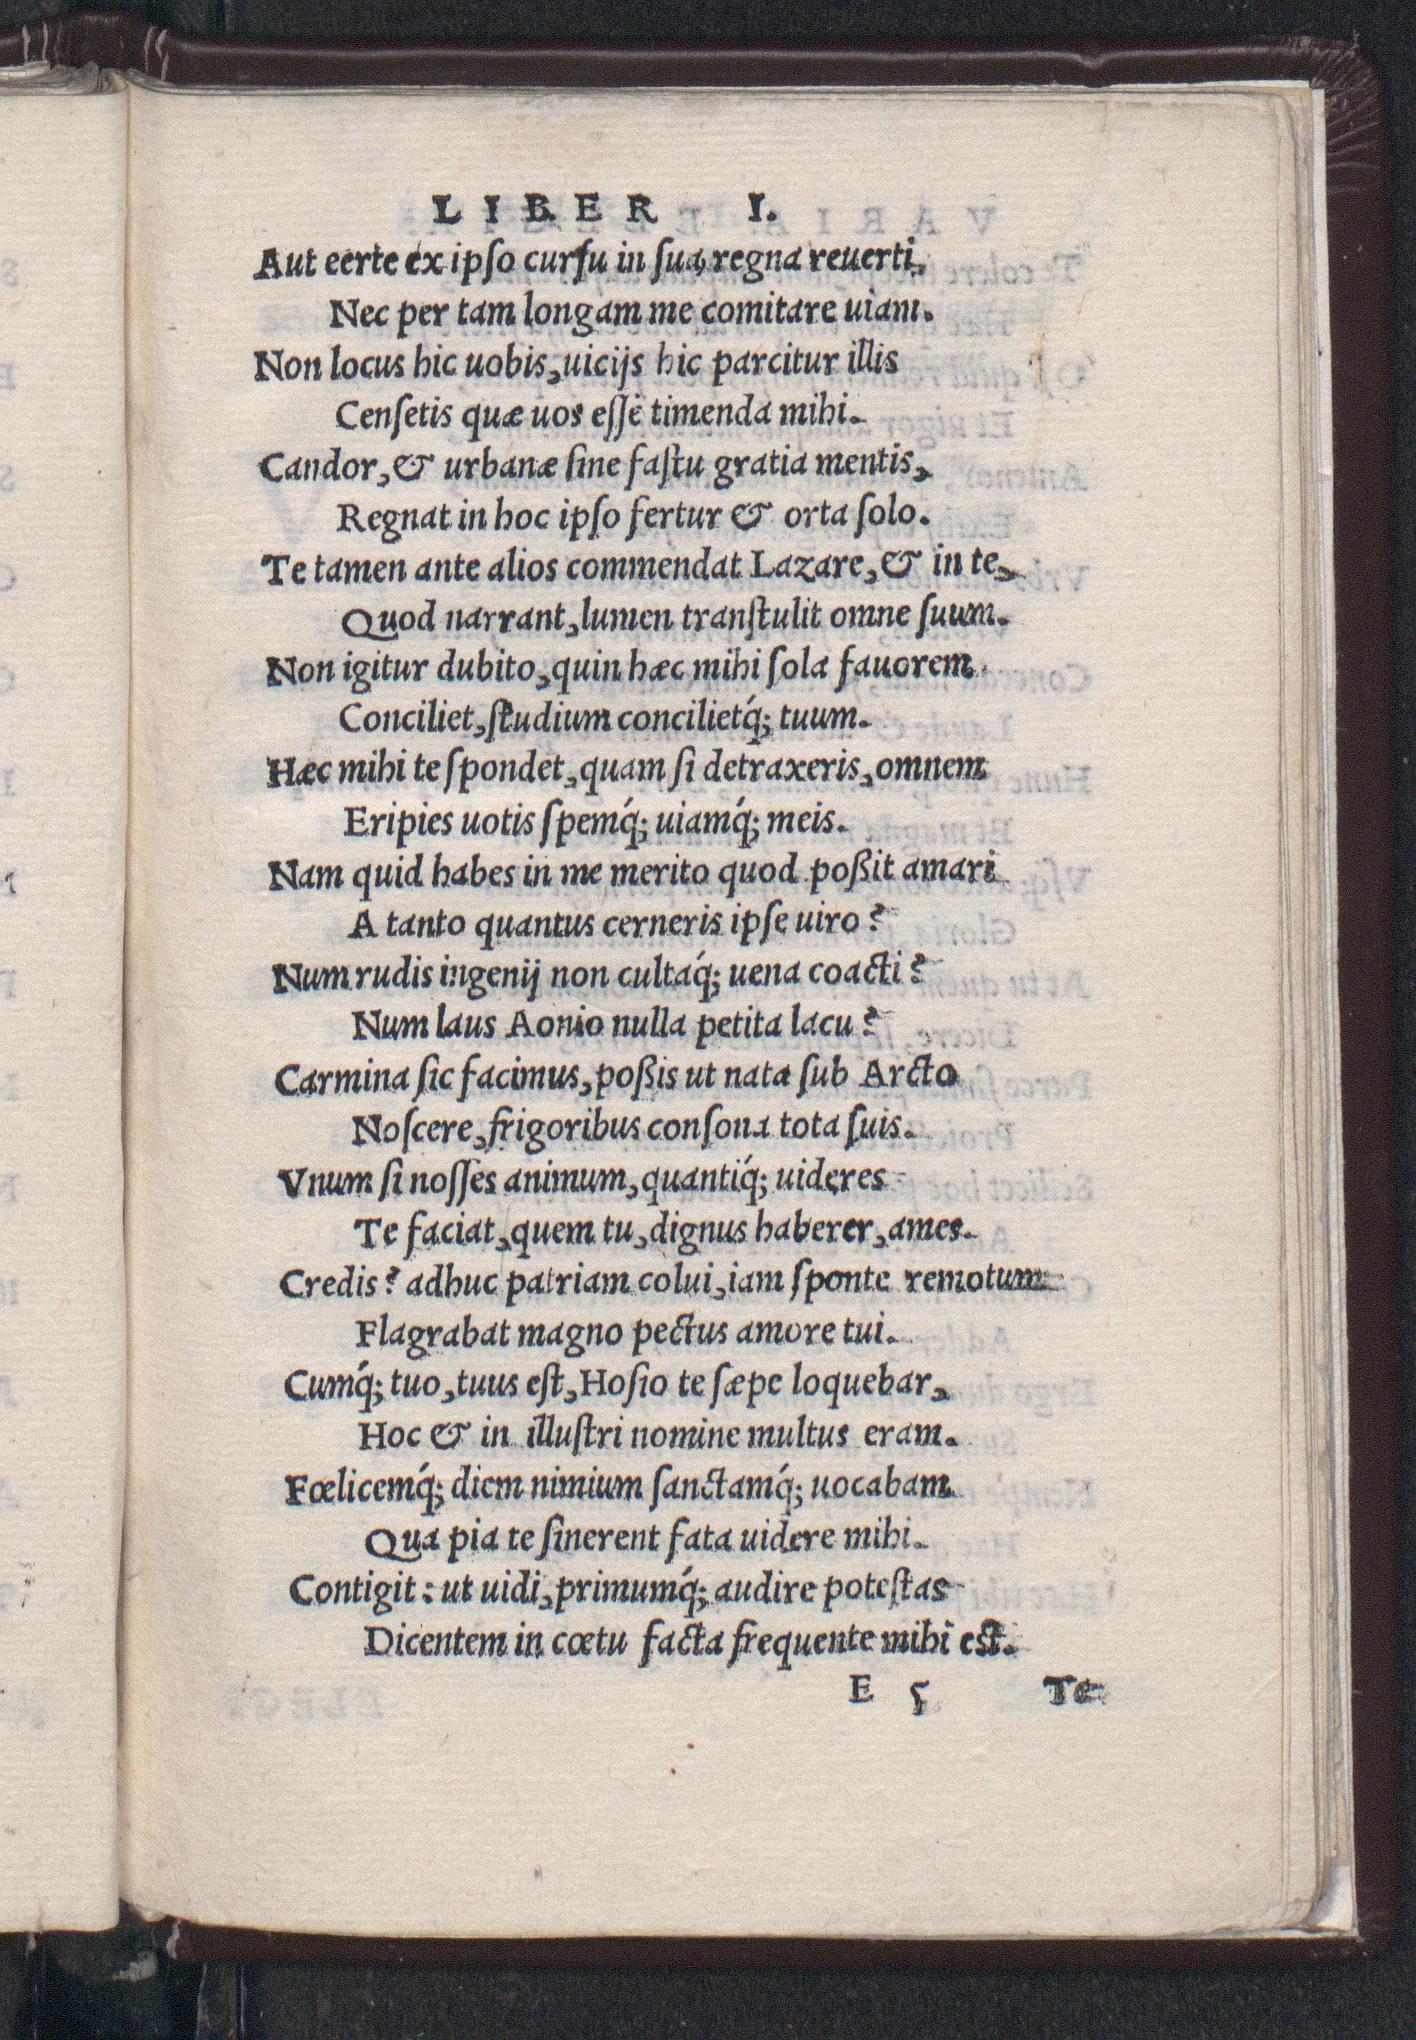 LIBER I.
Aut eerte ex ipſo curſu in ſua regna reuerti,
Nec per tam longam me comitare uiam.
Non locus hic uobis, uicijs hic parcitur illis
Cenſetis quæ uos eſſe timenda mihi.
Candor, & urbanæ ſine faſtu gratia mentis,
Regnat in hoc ipſo fertur & orta ſolo.
Te tamen ante alios commendat Lazare, & in te,
Quod narrant, lumen tranſtulit omne ſuum.
Non igitur dubito, quin hæc mihi ſola fauorem
Conciliet, ſtudium concilietq́; tuum.
Hæc mihi te ſpondet, quam ſi detraxeris, omnem
Eripies uotis ſpemq́; uiamq́; meis.
Nam quid habes in me merito quod poßit amari
A tanto quantus cerneris ipſe uiro?
Num rudis ingenij non cultaq́; uena coacti?
Num laus Aonio nulla petita lacu?
Carmina ſic facimus, poßis ut nata ſub Arcto
Noſcere, frigoribus conſona tota ſuis.
Vnum ſi noſſes animum, quantiq́; uideres
Te faciat, quem tu, dignus haberer, ames.
Credis? adhuc patriam colui, iam ſponte remotum
Flagrabat magno pectus amore tui.
Cumq́; tuo, tuus eſt, Hoſio te ſæpe loquebar,
Hoc & in illuſtri nomine multus eram.
Fœlicemq́; diem nimium ſanctamq́; uocabam
Qua pia te ſinerent fata uidere mihi.
Contigit: ut uidi, primumq́; audire poteſtas
Dicentem in cœtu facta frequente mihi eſt.
E 5 Te